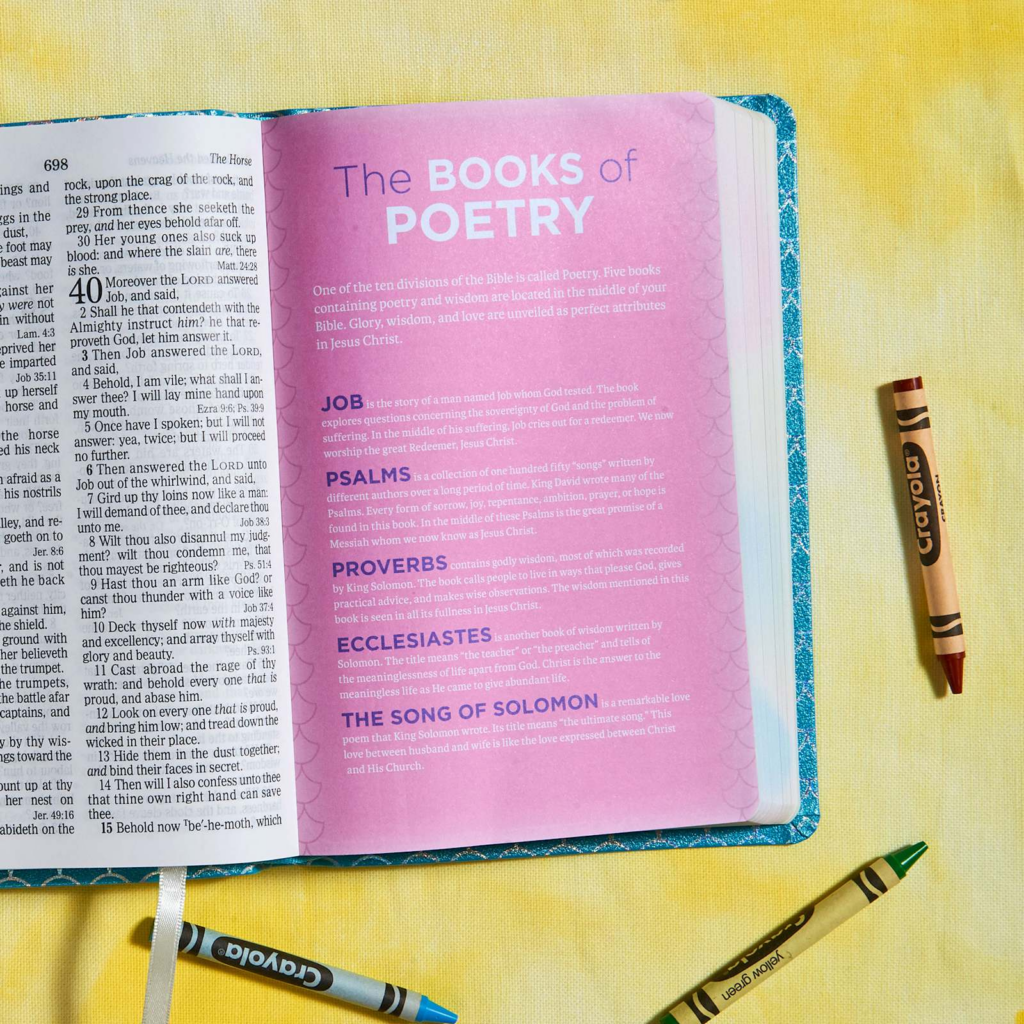 698
The Horse
ings and
ggs in the
dust,
e foot may
beast may
gainst her
y were not
in without
Lam. 4:3
eprived her
e imparted
Job 35:11
up herself
horse and
the horse
ed his neck
n afraid as a
his nostrils
lley, and re-
goeth on to
Jer. 8:6
, and is not
eth he back
against him,
he shield.
ground with
her believeth
the trumpet.
he trumpets,
the battle afar
captains, and
y by thy wis-
ngs toward the
ount up at thy
her nest on
Jer. 49:16
abideth on the
rock, upon the crag of the rock, and
the strong place.
29 From thence she seeketh the
prey, and her eyes behold afar off.
30 Her young ones also suck up
blood: and where the slain are, there
is she. Matt. 24:28
40 Moreover the LORD answered
Job, and said,
2 Shall he that contendeth with the
Almighty instruct him? he that re-
proveth God, let him answer it.
3 Then Job answered the LORD,
and said,
4 Behold, I am vile; what shall I an-
swer thee? I will lay mine hand upon
my mouth. Ezra 9:6; Ps. 39:9
5 Once have I spoken; but I will not
answer: yea, twice; but I will proceed
no further.
6 Then answered the LORD unto
Job out of the whirlwind, and said,
7 Gird up thy loins now like a man:
I will demand of thee, and declare thou
unto me. Job 38:3
8 Wilt thou also disannul my judg-
ment? wilt thou condemn me, that
thou mayest be righteous? Ps. 51:4
9 Hast thou an arm like God? or
canst thou thunder with a voice like
him? Job 37:4
10 Deck thyself now with majesty
and excellency; and array thyself with
glory and beauty. Ps. 93:1
11 Cast abroad the rage of thy
wrath: and behold every one that is
proud, and abase him.
12 Look on every one that is proud,
and bring him low; and tread down the
wicked in their place.
13 Hide them in the dust together;
and bind their faces in secret.
14 Then will I also confess unto thee
that thine own right hand can save
thee.
15 Behold now ᵀbe'-he-moth, which
The BOOKS of
POETRY
One of the ten divisions of the Bible is called Poetry. Five books
containing poetry and wisdom are located in the middle of your
Bible. Glory, wisdom, and love are unveiled as perfect attributes
in Jesus Christ.
JOB is the story of a man named Job whom God tested. The book
explores questions concerning the sovereignty of God and the problem of
suffering. In the middle of his suffering, Job cries out for a redeemer. We now
worship the great Redeemer, Jesus Christ.
PSALMS is a collection of one hundred fifty "songs" written by
different authors over a long period of time. King David wrote many of the
Psalms. Every form of sorrow, joy, repentance, ambition, prayer, or hope is
found in this book. In the middle of these Psalms is the great promise of a
Messiah whom we now know as Jesus Christ.
PROVERBS contains godly wisdom, most of which was recorded
by King Solomon. The book calls people to live in ways that please God, gives
practical advice, and makes wise observations. The wisdom mentioned in this
book is seen in all its fullness in Jesus Christ.
ECCLESIASTES is another book of wisdom written by
Solomon. The title means "the teacher" or "the preacher" and tells of
the meaninglessness of life apart from God. Christ is the answer to the
meaningless life as He came to give abundant life.
THE SONG OF SOLOMON is a remarkable love
poem that King Solomon wrote. Its title means "the ultimate song." This
love between husband and wife is like the love expressed between Christ
and His Church.
crayola®
CRAYON
Crayola®
Crayola
yellow green